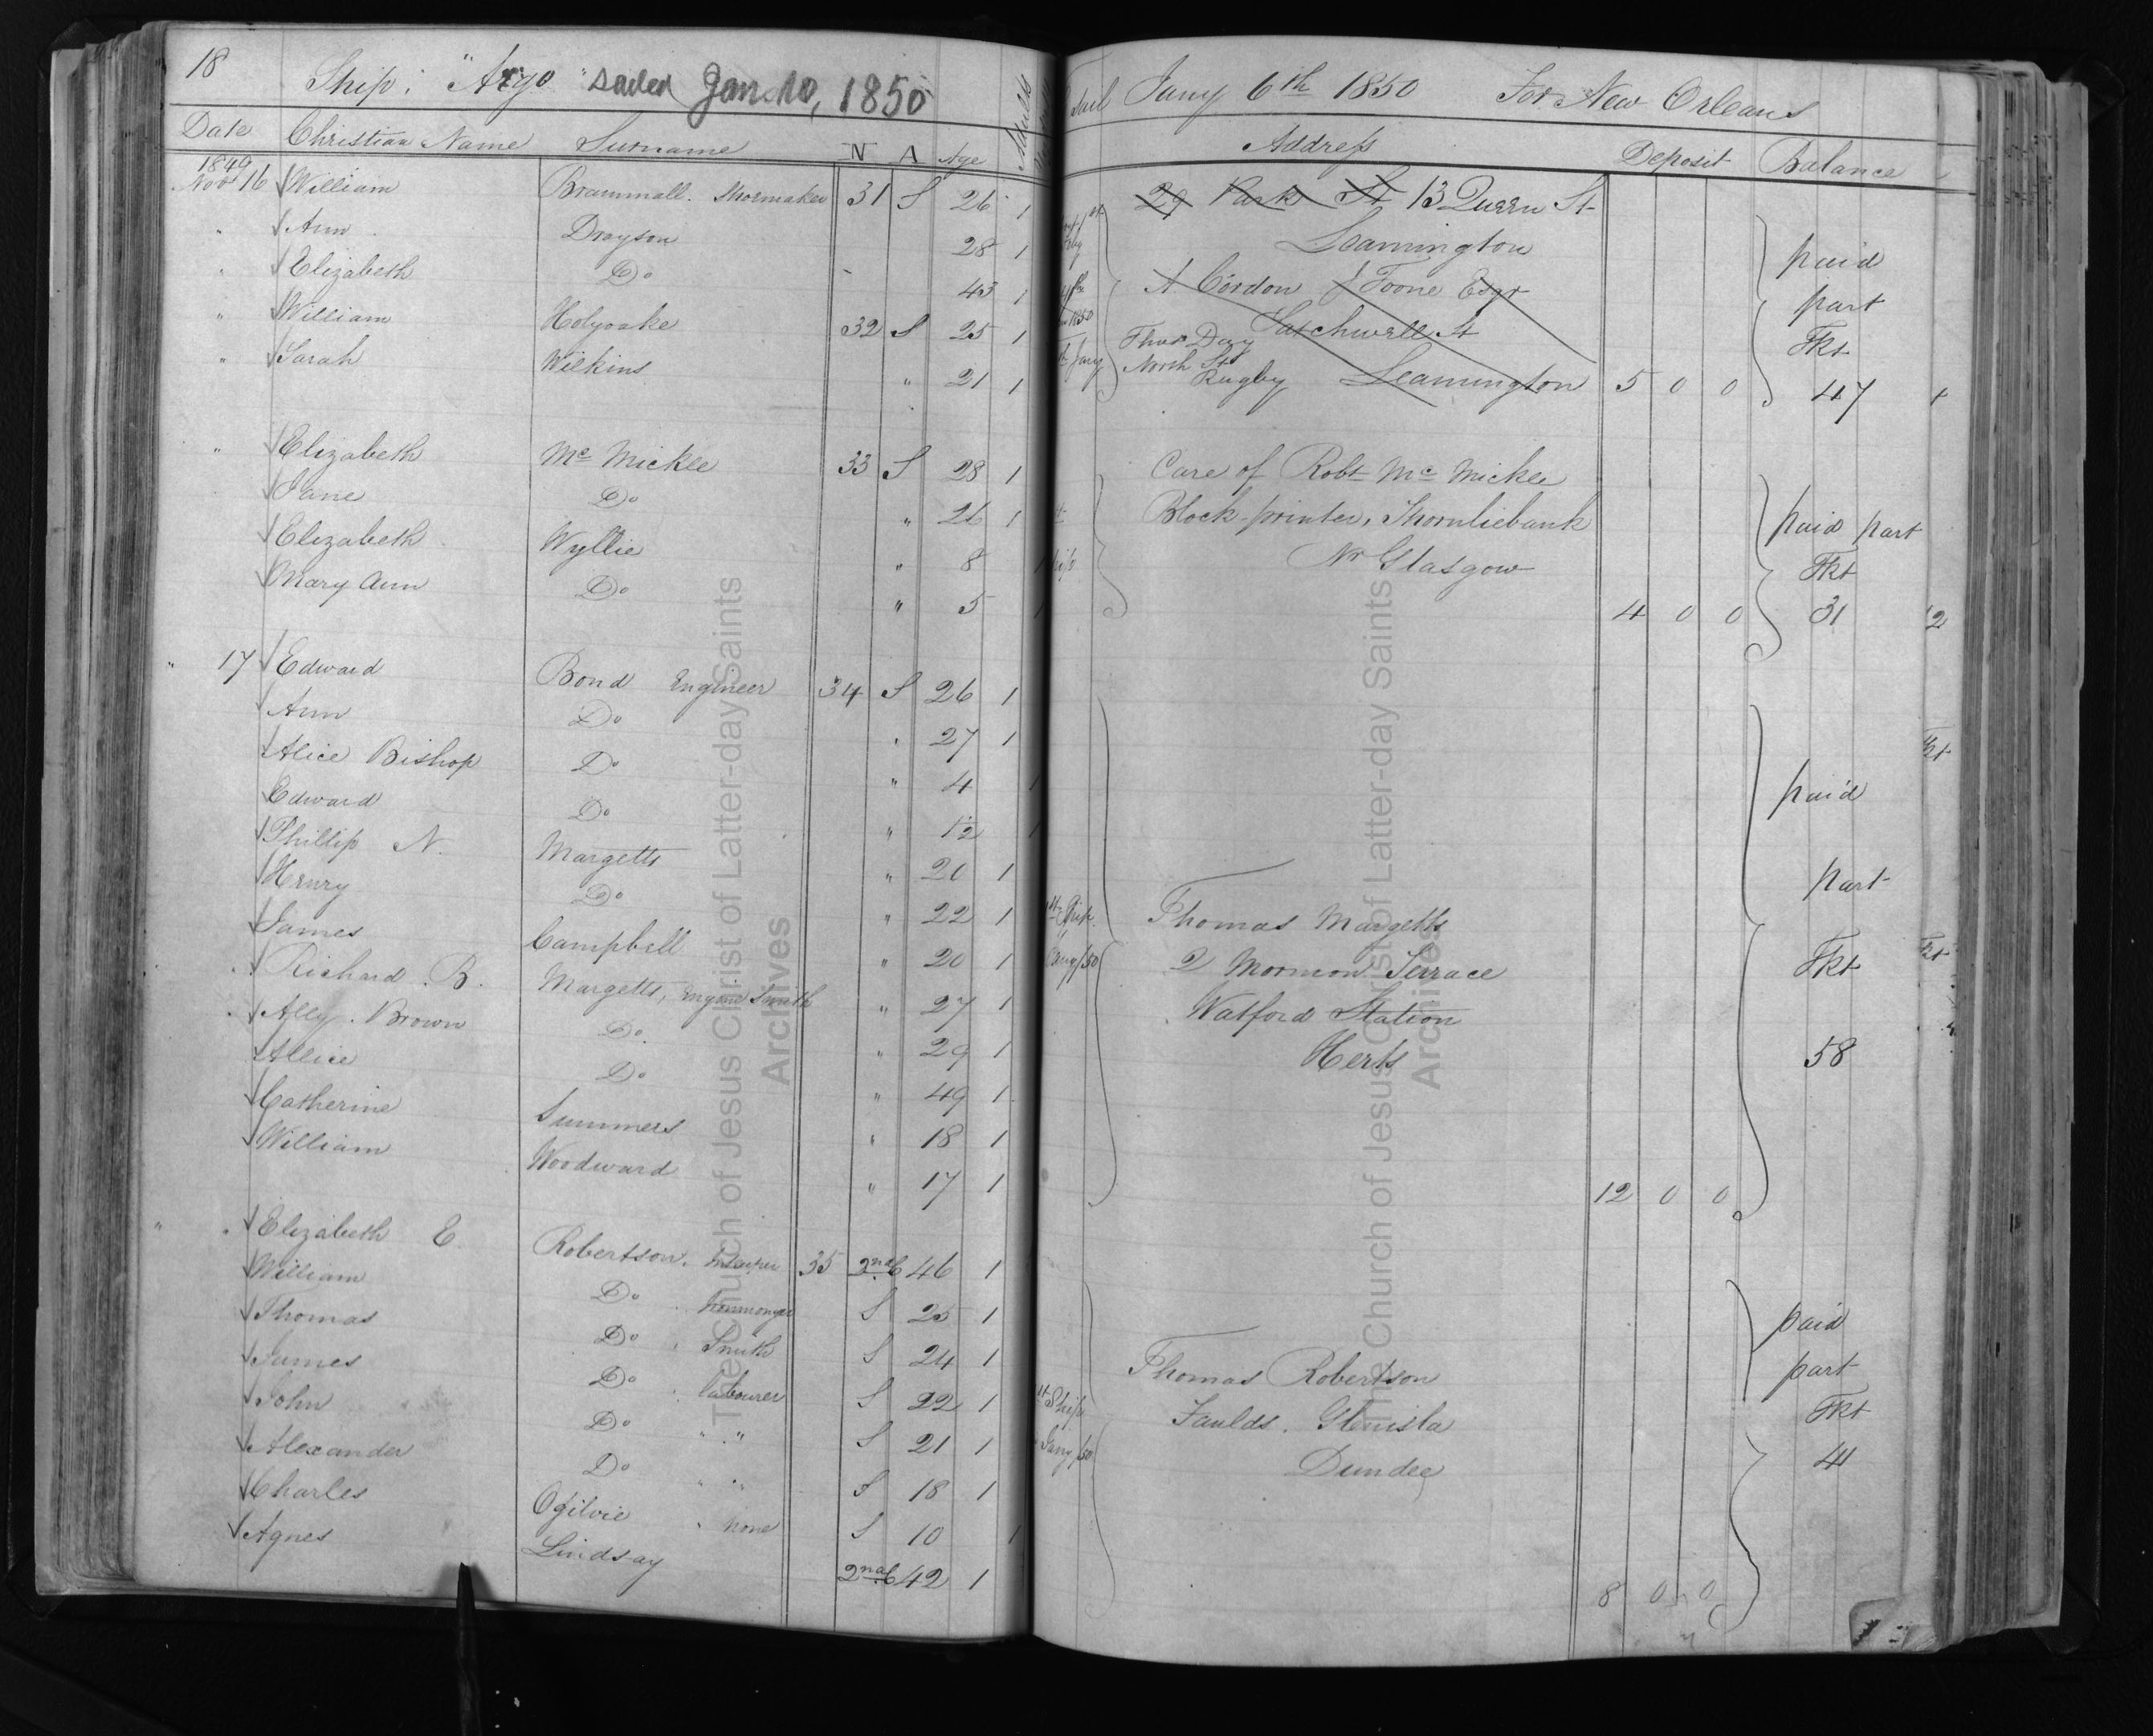 18 Ship: "Argo" sailed Jan. 10, 1850
Date Christian Name Surname N A Age Adults
1849
Nov 16 William Brammall. Shoemaker 31 S 26 1
" Ann Drayson 28 1
" Elizabeth Do 43 1
" William Holyoake 32 S 25 1
" Sarah Wilkins " 21 1
" Elizabeth Mc Mickle 33 S 28 1
Jane Do " 26 1
Elizabeth Wyllie " 8 1
Mary Ann Do " 5 1
" 17 Edward Bond Engineer 34 S 26 1
Ann Do " 27 1
Alice Bishop Do " 4 1
Edward Do " 1½ 1
Phillip N. Margetts " 20 1
Henry Do " 22 1
James Campbell " 20 1
Richard B. Margetts, Engine Smith " 27 1
Ally Brown Do " 29 1
Alice Do " 49 1
Catherine Summers " 18 1
William Woodward " 17 1
" " Elizabeth E Robertson. 35 2nd C 46 1
William Do Ironmonger S 25 1
Thomas Do Smith S 24 1
James Do labourer S 22 1
John Do " " S 21 1
Alexander Do " " S 18 1
Charles Ogilvie none S 10 1
Agnes Lindsay 2nd C 42 1
Sail Jany 6th 1850 For New Orleans
Address Deposit Balance
29 Park St 13 Queen St
Leamington paid
A Cordon J Toone Esqr part
Satchwell St Tkt
Thos Day
North St
Rugby Leamington 5 0 0 47
Care of Robt Mc Mickle
Block-printer, Thornliebank paid part
Nr Glasgow Tkt
4 0 0 31
paid
part
1st Ship Thomas Margetts
Jany/50 2 Mormon Terrace Tkt
Watford Station
Herts 58
12 0 0
paid
Thomas Robertson part
1st Ship Faulds. Glenisla Tkt
Jany/50 Dundee 41
8 0 0
The Church of Jesus Christ of Latter-day Saints
Archives
The Church of Jesus Christ of Latter-day Saints
Archives